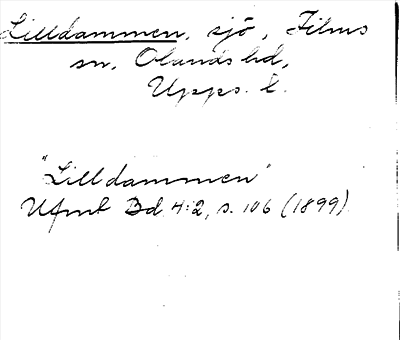 Lilldammen, sjö, Films
sn, Olands hd,
Upps. l.
"Lilldammen"
Ufmt Bd. 4:2, s. 106 (1899)